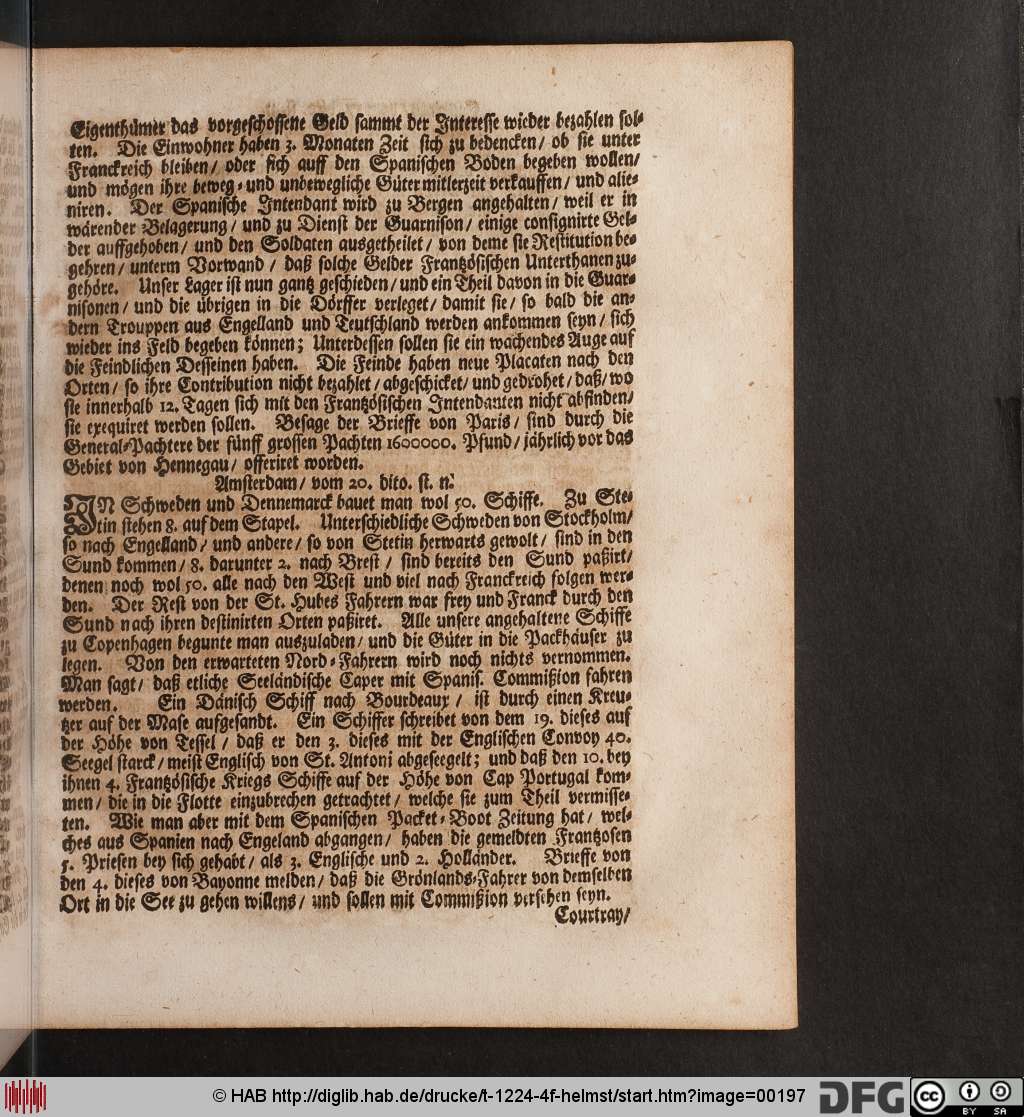 Eigenthümer das vorgeschossene Geld sammt der Interesse wieder bezahlen sol-
ten. Die Einwohner haben 3. Monaten Zeit sich zu bedencken/ ob sie unter
Franckreich bleiben/ oder sich auff den Spanischen Boden begeben wollen/
und mögen ihre beweg- und unbewegliche Güter mitlerzeit verkauffen/ und alie-
niren. Der Spanische Intendant wird zu Bergen angehalten/ weil er in
wärender Belagerung/ und zu Dienst der Guarnison/ einige consignirte Gel-
der auffgehoben/ und den Soldaten ausgetheilet/ von deme sie Restitution be-
gehren/ unterm Vorwand/ daß solche Gelder Frantzösischen Unterthanen zu-
gehöre. Unser Lager ist nun gantz geschieden/ und ein Theil davon in die Guar-
nisonen/ und die übrigen in die Dörffer verleget/ damit sie/ so bald die an-
dern Trouppen aus Engelland und Teutschland werden ankommen seyn/ sich
wieder ins Feld begeben können; Unterdessen sollen sie ein wachendes Auge auf
die Feindlichen Desseinen haben. Die Feinde haben neue Placaten nach den
Orten/ so ihre Contribution nicht bezahlet/ abgeschicket/ und gedrohet/ daß/ wo
sie innerhalb 12. Tagen sich mit den Frantzösischen Intendanten nicht abfinden/
sie exequiret werden sollen. Besage der Brieffe von Paris/ sind durch die
General-Pachtere der fünff grossen Pachten 1600000. Pfund/ jährlich vor das
Gebiet von Hennegau/ offeriret worden.
Amsterdam/ vom 20. dito. st. n.
IN Schweden und Dennemarck bauet man wol 50. Schiffe. Zu Ste-
tin stehen 8. auf dem Stapel. Unterschiedliche Schweden von Stockholm/
so nach Engelland/ und andere/ so von Stetin herwarts gewolt/ sind in den
Sund kommen/ 8. darunter 2. nach Brest/ sind bereits den Sund paßirt/
denen noch wol 50. alle nach den West und viel nach Franckreich folgen wer-
den. Der Rest von der St. Hubes Fahrern war frey und Franck durch den
Sund nach ihren destinirten Orten paßiret. Alle unsere angehaltene Schiffe
zu Copenhagen begunte man auszuladen/ und die Güter in die Packhäuser zu
legen. Von den erwarteten Nord-Fahrern wird noch nichts vernommen.
Man sagt/ daß etliche Seeländische Caper mit Spanis. Commißion fahren
werden. Ein Dänisch Schiff nach Bourdeaux/ ist durch einen Kreu-
tzer auf der Mase aufgesandt. Ein Schiffer schreibet von dem 19. dieses auf
der Höhe von Tessel/ daß er den 3. dieses mit der Englischen Convoy 40.
Seegel starck/ meist Englisch von St. Antoni abgeseegelt; und daß den 10. bey
ihnen 4. Frantzösische Kriegs Schiffe auf der Höhe von Cap Portugal kom-
men/ die in die Flotte einzubrechen getrachtet/ welche sie zum Theil vermisse-
ten. Wie man aber mit dem Spanischen Packet-Boot Zeitung hat/ wel-
ches aus Spanien nach Engeland abgangen/ haben die gemeldten Frantzosen
5. Priesen bey sich gehabt/ als 3. Englische und 2. Holländer. Brieffe von
den 4. dieses von Bayonne melden/ daß die Grönlands-Fahrer von demselben
Ort in die See zu gehen willens/ und sollen mit Commißion versehen seyn.
Courtray/
© HAB http://diglib.hab.de/drucke/t-1224-4f-helmst/start.htm?image=00197
DFG
cc BY SA